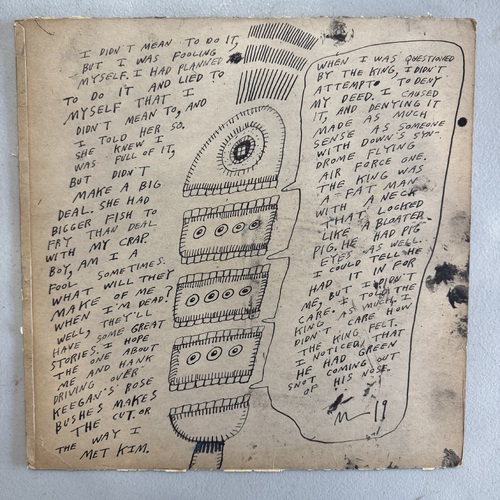 I DIDN'T MEAN TO DO IT,
BUT I WAS FOOLING
MYSELF. I HAD PLANNED
TO DO IT AND LIED TO
MYSELF THAT I
DIDN'T MEAN TO, AND
I TOLD HER SO.
SHE KNEW I
WAS FULL OF IT,
BUT DIDN'T
MAKE A BIG
DEAL. SHE HAD
BIGGER FISH TO
FRY THAN DEAL
WITH MY CRAP.
BOY, AM I A
FOOL SOMETIMES.
WHAT WILL THEY
MAKE OF ME
WHEN I'M DEAD?
WELL, THEY'LL
HAVE SOME GREAT
STORIES. I HOPE
THE ONE ABOUT
ME AND HANK
DRIVING OVER
KEEGAN'S ROSE
BUSHES MAKES
THE CUT. OR
THE WAY I
MET KIM.
WHEN I WAS QUESTIONED
BY THE KING, I DIDN'T
ATTEMPT TO DENY
MY DEED. I CAUSED
IT, AND DENYING IT
MADE AS MUCH
SENSE AS SOMEONE
WITH DOWN'S SYN-
DROME FLYING
AIR FORCE ONE.
THE KING WAS
A FAT MAN
WITH A NECK
THAT LOOKED
LIKE A BLOATER
PIG. HE HAD PIG
EYES AS WELL.
I COULD TELL HE
HAD IT IN FOR
ME, BUT I DIDN'T
CARE. I TOLD THE
KING AS MUCH. I
DIDN'T CARE HOW
THE KING FELT.
I NOTICED THAT
HE HAD GREEN
SNOT COMING OUT
OF HIS NOSE.
19